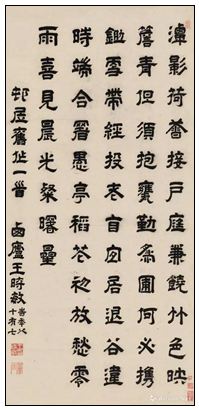 潭影荷香接戶庭兼饒竹色映
簷青但須抱甕勤為圃何必攜
鋤雪帶經投老自宜居退谷違
時端合署愚亭稻花初放愁零
雨喜見晨光粲曙星
邨居舊作一首 西廬王時敏
十有七